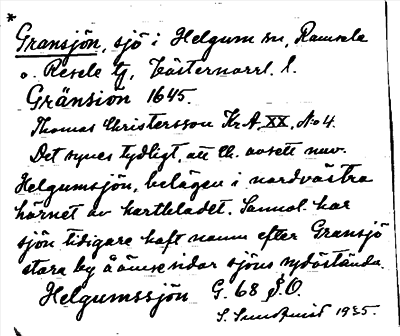 *
Gransjön, sjö i Helgum sn, Ramsele
o. Resele tg, Västernorrl. l.
Gränsiön 1645.
Thomas Christersson Kr.A. XX, No 4.
Det synes tydligt, att Ch. avsett nuv.
Helgumsjön, belägen i nordvästra
hörnet av kartbladet. Sannol. har
sjön tidigare haft namn efter Gransjö
stora by å ömse sidor sjöns sydöstända
Helgumssjön G. 68 S.O.
S. Sundqvist 1935.